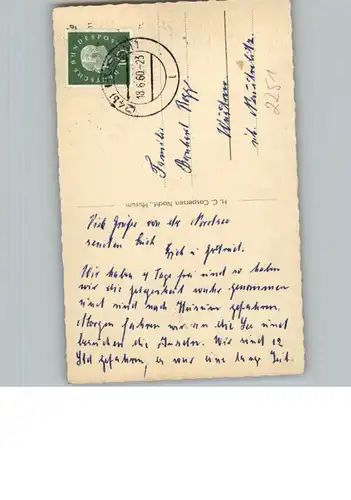 DEUTSCHE BUNDESPOST
10
(24b) HUSUM
18.6.60-23
Familie
Bernhard
üb.
2251
H. C. Caspersen Nachf., Husum
Viele Grüße von der Nordsee
senden Euch
u.
Wir haben 4 Tage frei und so haben
wir die Gelegenheit wahr genommen
und sind nach Husum gefahren.
Morgen fahren wir an die See und
besuchen die Inseln. Wir sind 12
Std gefahren, es war eine lange Zeit.